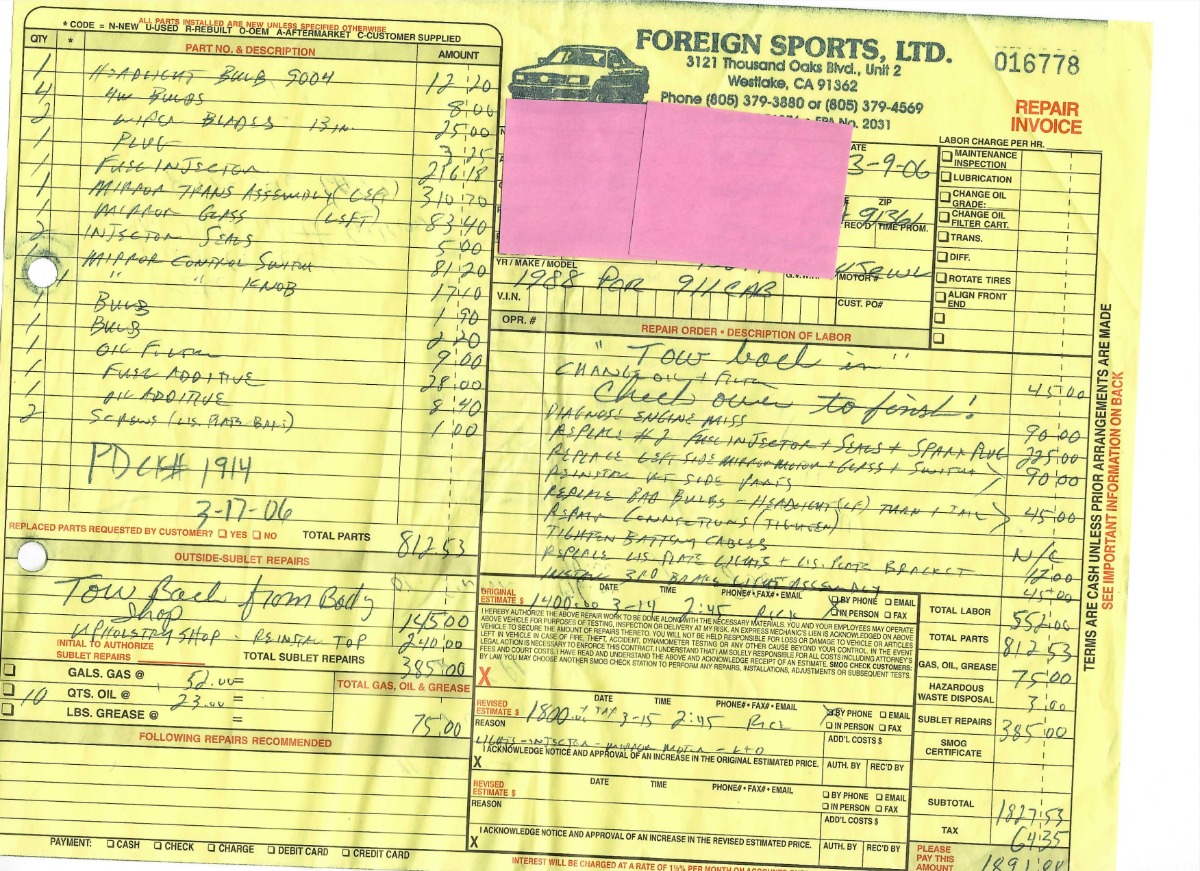 ALL PARTS INSTALLED ARE NEW UNLESS SPECIFIED OTHERWISE
* CODE = N-NEW U-USED R-REBUILT O-OEM A-AFTERMARKET C-CUSTOMER SUPPLIED
QTY * PART NO. & DESCRIPTION AMOUNT
1 HEADLIGHT BULB 9004 12 20
4 4W BULBS 8 00
2 WIPER BLADES 13 IN. 25 00
1 PLUG 3 25
1 FUEL INJECTOR 216 18
1 MIRROR TRANS ASSEMBLY (LEFT) 310 70
1 MIRROR GLASS (LEFT) 83 40
2 INJECTOR SEALS 5 00
1 MIRROR CONTROL SWITCH 81 20
1 " " KNOB 17 10
1 BULB 1 90
1 BULB 2 20
1 OIL FILTER 9 00
1 FUEL ADDITIVE 28 00
1 OIL ADDITIVE 8 40
2 SCREWS (LIS. PLATE 1 00
PD CK# 1914
3-17-06
REPLACED PARTS REQUESTED BY CUSTOMER? YES NO TOTAL PARTS 812 53
OUTSIDE-SUBLET REPAIRS
Tow Back from Body Shop 145 00
UPHOLSTRY SHOP - REINSTAL TOP 240 00
INITIAL TO AUTHORIZE SUBLET REPAIRS TOTAL SUBLET REPAIRS 385 00
GALS. GAS @ 52.00 =
10 QTS. OIL @ 23.00 =
LBS. GREASE @ =
TOTAL GAS, OIL & GREASE 75 00
FOLLOWING REPAIRS RECOMMENDED
PAYMENT: CASH CHECK CHARGE DEBIT CARD CREDIT CARD
FOREIGN SPORTS, LTD.
3121 Thousand Oaks Blvd., Unit 2
Westlake, CA 91362
Phone (805) 379-3880 or (805) 379-4569
EPA No. 2031
016778
REPAIR INVOICE
LABOR CHARGE PER HR.
3-9-06
ZIP
91361
REC'D TIME PROM.
YR / MAKE / MODEL
MOTOR #
1988 POR 911 CAB
V.I.N.
CUST. PO#
MAINTENANCE INSPECTION
LUBRICATION
CHANGE OIL GRADE:
CHANGE OIL FILTER CART.
TRANS.
DIFF.
ROTATE TIRES
ALIGN FRONT END
OPR. # REPAIR ORDER • DESCRIPTION OF LABOR
"Tow back in"
CHANGE OIL + FILTER 45 00
Check over to first!
DIAGNOSE ENGINE MISS 90 00
REPLACE #2 FUEL INJECTOR + SEALS + SPARK PLUG 225 00
REPLACE LEFT SIDE MIRROR MOTOR + GLASS + SWITCH 90 00
REINSTAL RT SIDE PARTS
REPLACE BAD BULBS - HEADLIGHT (LF) 45 00
REPAIR CONNECTIONS (TIGHTEN)
TIGHTEN BATTERY CABLES N/C
REPLACE LIS. PLATE LIGHTS + LIS. PLATE BRACKET 12 00
INSTAL 3RD BRAKE LIGHT ASSEMBLY 45 00
ORIGINAL ESTIMATE $ 1400.00 DATE 3-14 TIME 2:45 PHONE# • FAX# • EMAIL RICK BY PHONE EMAIL IN PERSON FAX
I HEREBY AUTHORIZE THE ABOVE REPAIR WORK TO BE DONE ALONG WITH THE NECESSARY MATERIALS. YOU AND YOUR EMPLOYEES MAY OPERATE
ABOVE VEHICLE FOR PURPOSES OF TESTING, INSPECTION OR DELIVERY AT MY RISK. AN EXPRESS MECHANIC'S LIEN IS ACKNOWLEDGED ON ABOVE
VEHICLE TO SECURE THE AMOUNT OF REPAIRS THERETO. YOU WILL NOT BE HELD RESPONSIBLE FOR LOSS OR DAMAGE TO VEHICLE OR ARTICLES
LEFT IN VEHICLE IN CASE OF FIRE, THEFT, ACCIDENT, DYNAMOMETER TESTING OR ANY OTHER CAUSE BEYOND YOUR CONTROL. IN THE EVENT
LEGAL ACTION IS NECESSARY TO ENFORCE THIS CONTRACT, I UNDERSTAND THAT I AM SOLELY RESPONSIBLE FOR ALL COSTS INCLUDING ATTORNEY'S
FEES AND COURT COSTS. I HAVE READ AND UNDERSTAND THE ABOVE AND ACKNOWLEDGE RECEIPT OF AN ESTIMATE. SMOG CHECK CUSTOMERS:
BY LAW YOU MAY CHOOSE ANOTHER SMOG CHECK STATION TO PERFORM ANY REPAIRS, INSTALLATIONS, ADJUSTMENTS OR SUBSEQUENT TESTS.
X
REVISED ESTIMATE $ 1800.00 + TAX DATE 3-15 TIME 2:45 PHONE# • FAX# • EMAIL RICK BY PHONE EMAIL IN PERSON FAX
REASON ADD'L COSTS $
LIGHTS - INJECTOR - MIRROR MOTOR -
I ACKNOWLEDGE NOTICE AND APPROVAL OF AN INCREASE IN THE ORIGINAL ESTIMATED PRICE. AUTH. BY REC'D BY
X
REVISED ESTIMATE $ DATE TIME PHONE# • FAX# • EMAIL BY PHONE EMAIL IN PERSON FAX
REASON ADD'L COSTS $
I ACKNOWLEDGE NOTICE AND APPROVAL OF AN INCREASE IN THE REVISED ESTIMATED PRICE. AUTH. BY REC'D BY
X
TOTAL LABOR 552 00
TOTAL PARTS 812 53
GAS, OIL, GREASE 75 00
HAZARDOUS WASTE DISPOSAL 3 00
SUBLET REPAIRS 385 00
SMOG CERTIFICATE
SUBTOTAL 1827 53
TAX 64 35
PLEASE PAY THIS AMOUNT
INTEREST WILL BE CHARGED AT A RATE OF 1½% PER MONTH ON
TERMS ARE CASH UNLESS PRIOR ARRANGEMENTS ARE MADE
SEE IMPORTANT INFORMATION ON BACK